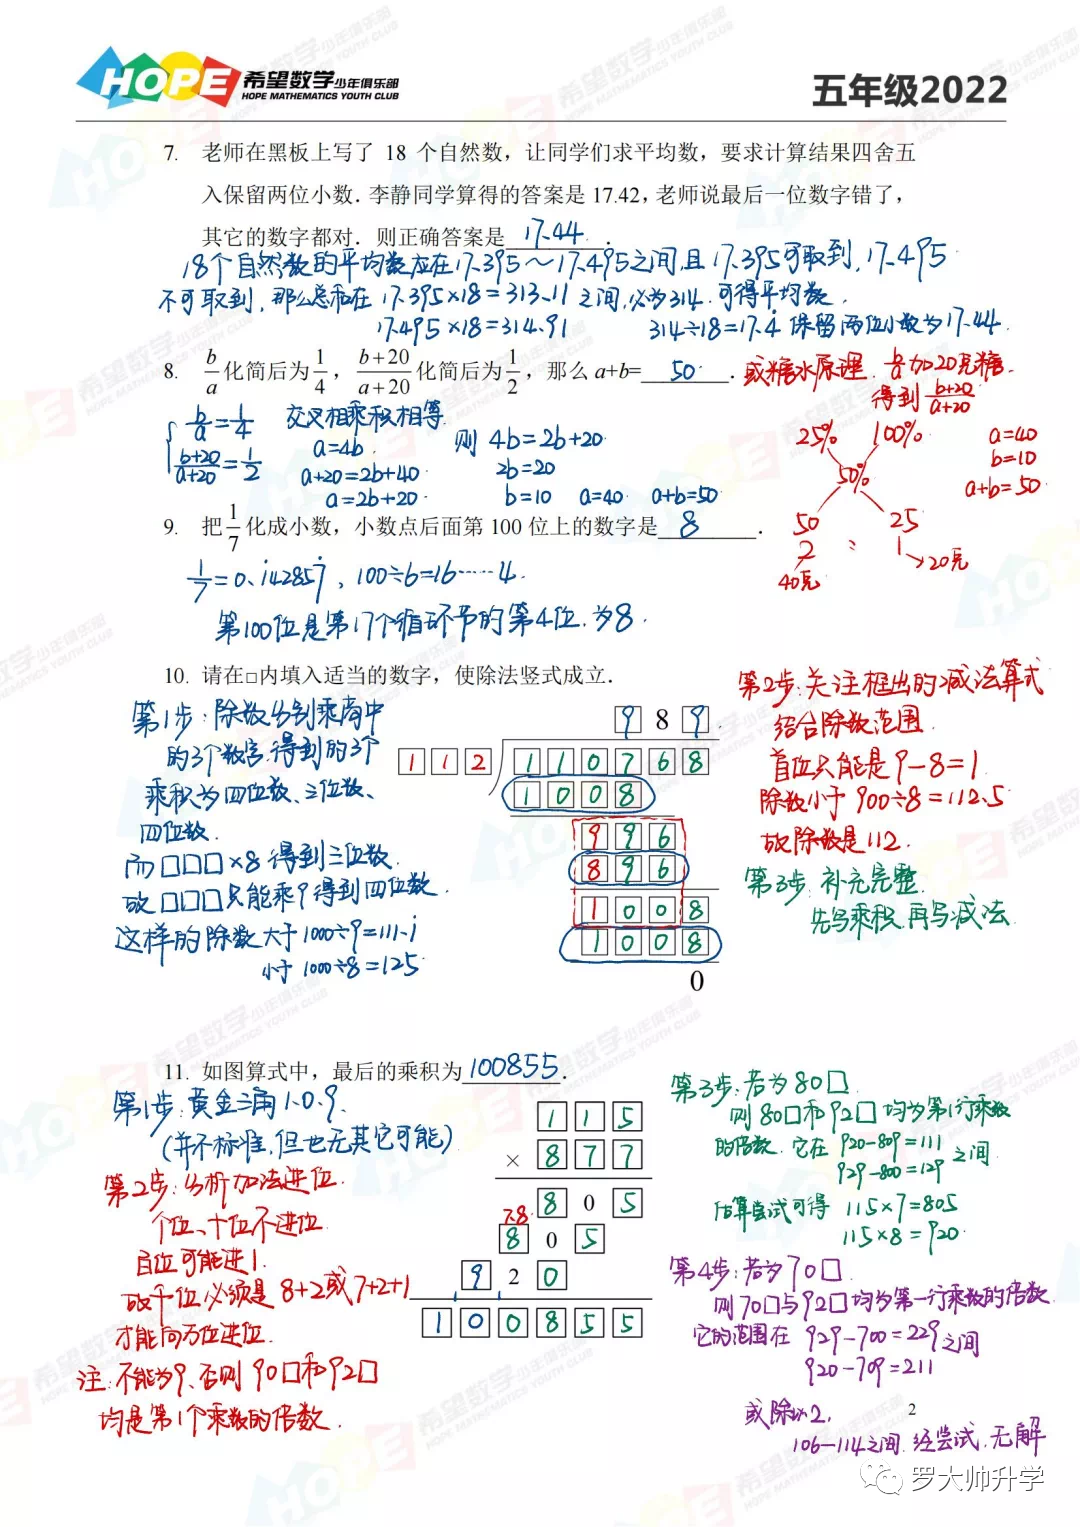 HOPE 希望数学少年俱乐部
HOPE MATHEMATICS YOUTH CLUB
五年级2022
7. 老师在黑板上写了 18 个自然数，让同学们求平均数，要求计算结果四舍五
入保留两位小数．李静同学算得的答案是 17.42，老师说最后一位数字错了，
其它的数字都对．则正确答案是 17.44 ．
18个自然数的平均数应在17.395～17.495之间,且17.395可取到,17.495
不可取到,那么总和在 17.395×18=313.11 之间,必为314.可得平均数,
17.495×18=314.91 314÷18=17.4̇ 保留两位小数为17.44.
8. b/a 化简后为 1/4，(b+20)/(a+20) 化简后为 1/2，那么 a+b= 50 ．
或糖水原理. b/a加20克糖.
得到 (b+20)/(a+20)
{ b/a=1/4 交叉相乘积相等.
(b+20)/(a+20)=1/2
a=4b.
a+20=2b+40
a=2b+20.
则 4b=2b+20
2b=20
b=10 a=40 a+b=50
25% 100%
50%
50 25
2 : 1→20克
40克
a=40
b=10
a+b=50
9. 把 1/7 化成小数，小数点后面第 100 位上的数字是 8 ．
1/7=0.1̇42857̇, 100÷6=16……4.
第100位是第17个循环节的第4位.为8.
10. 请在□内填入适当的数字，使除法竖式成立．
第1步:除数分别乘商中
的3个数字.得到的3个
乘积为四位数、三位数、
四位数.
而□□□×8得到三位数.
故□□□只能乘9得到四位数.
这样的除数大于1000÷9=111.1̇
小于1000÷8=125
9 8 9
1 1 2 1 1 0 7 6 8
1 0 0 8
9 9 6
8 9 6
1 0 0 8
1 0 0 8
0
第2步:关注框出的减法算式
结合除数范围.
首位只能是9-8=1
除数小于900÷8=112.5
故除数是112.
第3步.补充完整.
先写乘积.再写减法
11. 如图算式中，最后的乘积为 100855 ．
第1步:黄金三角1.0.9.
(并不标准.但也无其它可能)
第2步:分析加法进位.
个位、十位不进位
百位可能进1.
故千位必须是8+2或7+2+1
才能向万位进位.
注:不能为9、否则90□和92□
均是第1个乘数的倍数.
1 1 5
× 8 7 7
8 0 5
7.8
8 0 5
9 2 0
1 0 0 8 5 5
第3步:若为80□.
则80□和92□均为第1行乘数
的倍数.它在 920-809=111
929-800=129 之间
估算尝试可得 115×7=805
115×8=920.
第4步:若为70□.
则70□与92□均为第一行乘数的倍数.
它的范围在 929-700=229 之间
920-709=211
或除以2.
106-114之间.经尝试.无解
2
罗大帅升学